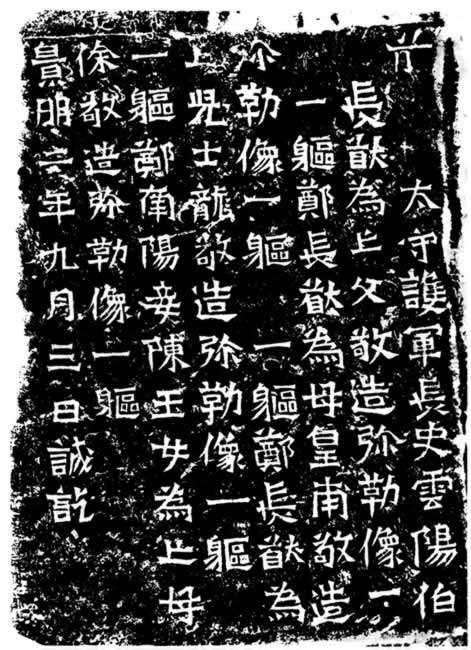 太守護軍長史雲陽伯
長猷為亡父敬造弥勒像一
一軀鄭長猷為母皇甫敬造
弥勒像一軀 一軀鄭長猷為
亡児士龍敬造弥勒像一軀
一軀鄭南陽妾陳玉女為亡母
徐敬造弥勒像一軀
景明二年九月三日誠訖